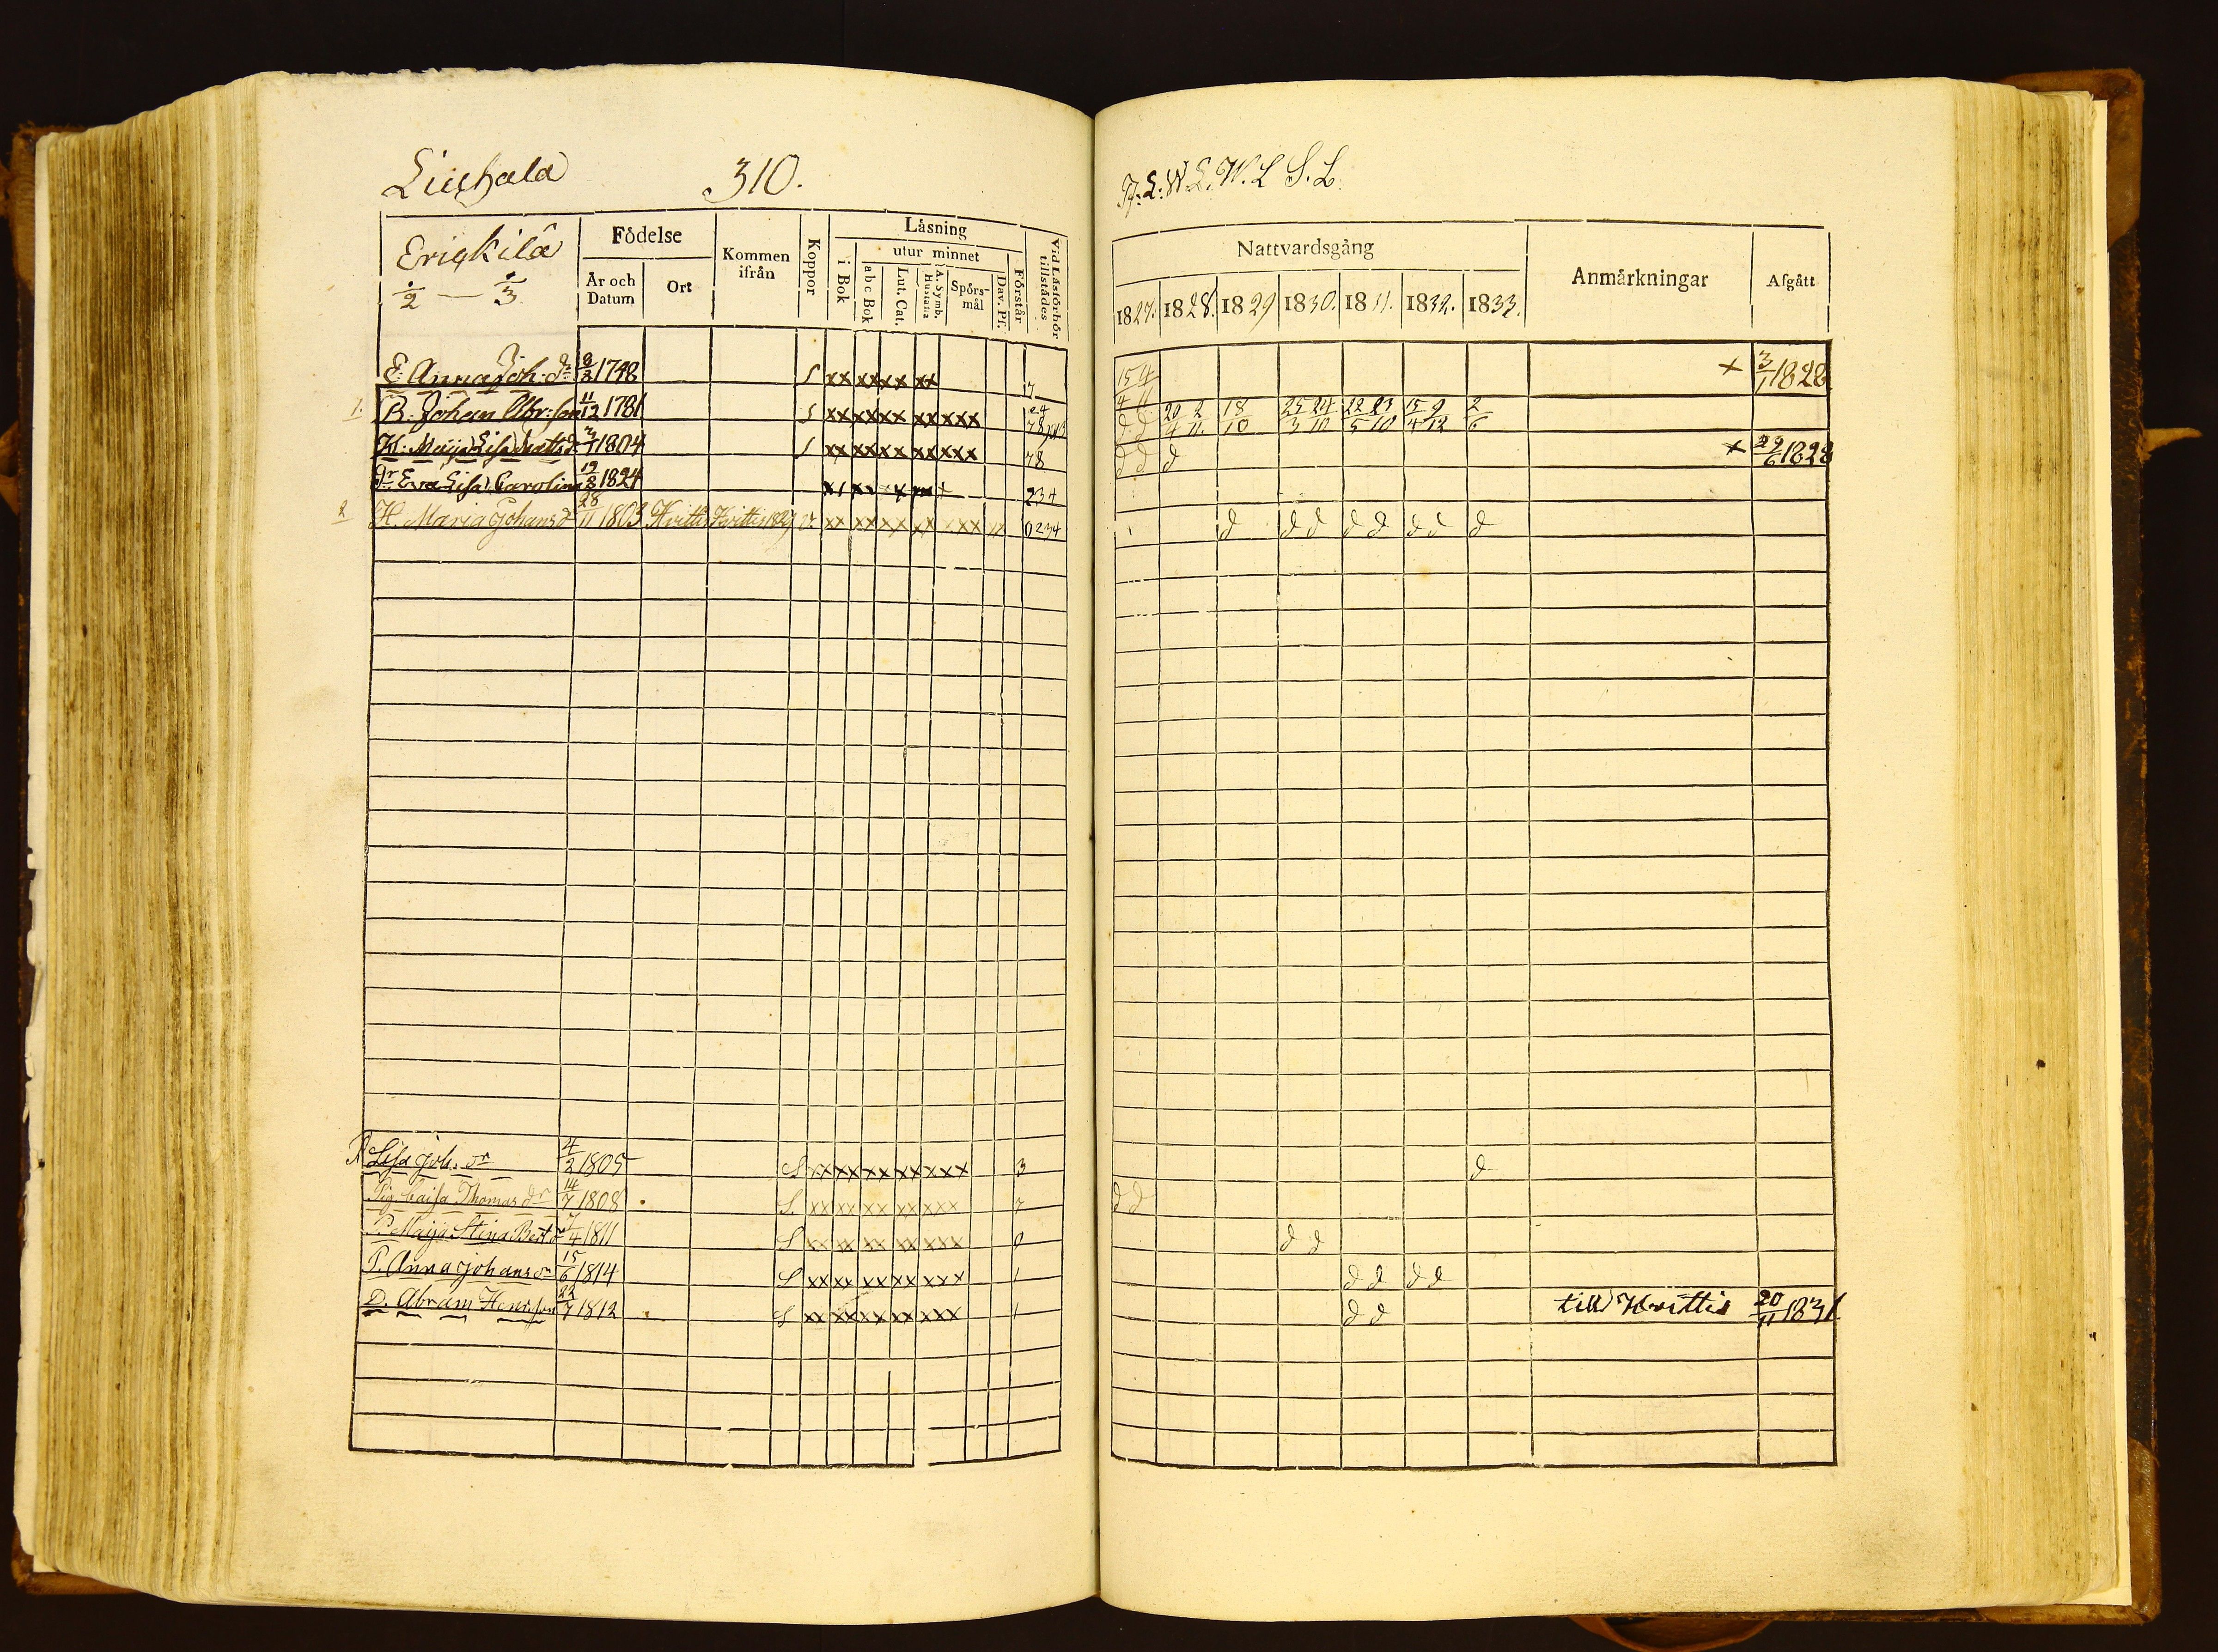 310.
Födelse
Läsning
Erickilä
1/2 — 1/3
År och Datum
Ort
Kommen ifrån
Koppor
i Bok
utur minnet
abc Bok
Lut. Cat.
A. Symb. Hustafla
Spörsmål
Dav. Ps.
Förstår
Vid Läsförhör tillstädes
E: Anna Joh: dr 8/2 1748 S xx xx xx xx 7
1. B: Johan Abr: son 11/12 1781 S xx xx xx xx xxx
H: Maija Lisa Matts d 3/7 1804 S xx xx xx xx xxx 78
dr Eva Lisa Carolina 19/8 1824 234
2 H. Maria Johans d 28/11 1803 Hvittis Hvittis 1829 v xx xx xx xx xxx xx 0234
P Lisa Joh. dr 4/2 1805 S xx xx xx xx xxx 3
Pig. Caisa Thomas dr 14/7 1808 S xx xx xx xx xxx 7
P. Maija Stina Bert dr 7/4 1811 S xx xx xx xx xxx 0
P. Anna Johans dr 15/6 1814 S xx xx xx xx xxx 1
D. Abram Henrisson 22/7 1812 S xx xx xx xx xxx 1
Nattvardsgång
Anmärkningar
Afgått
1827. 1828. 1829 1830. 1831. 1832. 1833.
15/4 4/11 x 3/1 1828
d d 20/4 2/11 18/10 25/3 24/10 22/5 23/10 15/4 9/12 2/6
d d d x 29/6 1828
d d d d d d d d
d
d d
d d
d d d d
d d till Hvittis 20/11 1831